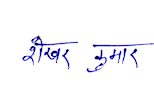 शेखर कुमार